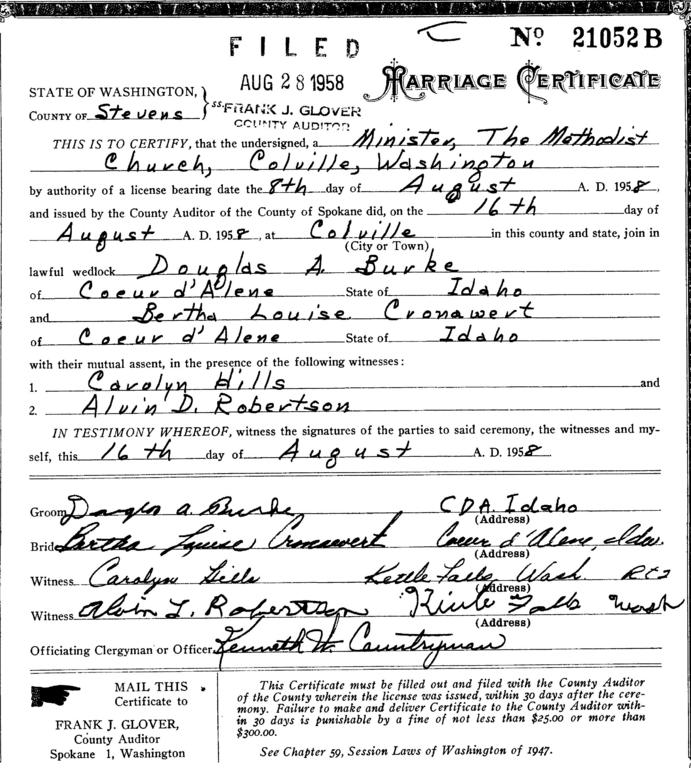 FILED
Nº 21052B
AUG 28 1958
MARRIAGE CERTIFICATE
STATE OF WASHINGTON,
COUNTY OF Stevens
ss
FRANK J. GLOVER
COUNTY AUDITOR
THIS IS TO CERTIFY, that the undersigned, a Minister, The Methodist
Church, Colville, Washington
by authority of a license bearing date the 8th day of August A. D. 1958,
and issued by the County Auditor of the County of Spokane did, on the 16th day of
August A. D. 1958, at Colville in this county and state, join in
(City or Town)
lawful wedlock Douglas A. Burke
of Coeur d'Alene State of Idaho
and Bertha Louise Cronawert
of Coeur d'Alene State of Idaho
with their mutual assent, in the presence of the following witnesses:
1. Carolyn Hills and
2. Alvin D. Robertson
IN TESTIMONY WHEREOF, witness the signatures of the parties to said ceremony, the witnesses and my-
self, this 16th day of August A. D. 1958
Groom Douglas A. Burke CDA. Idaho
(Address)
Bride Bertha Louise Cronawert Coeur d'Alene, Ida.
(Address)
Witness Carolyn Hills Kettle Falls, Wash. Rt 2
(Address)
Witness Alvin L. Robertson Kettle Falls Wash
(Address)
Officiating Clergyman or Officer Kenneth W. Countryman
MAIL THIS
Certificate to
FRANK J. GLOVER,
County Auditor
Spokane 1, Washington
This Certificate must be filled out and filed with the County Auditor
of the County wherein the license was issued, within 30 days after the cere-
mony. Failure to make and deliver Certificate to the County Auditor with-
in 30 days is punishable by a fine of not less than $25.00 or more than
$300.00.
See Chapter 59, Session Laws of Washington of 1947.